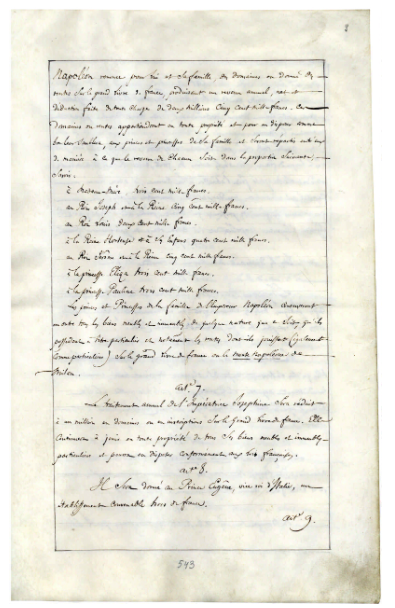 2
Napoléon renonce pour lui et sa famille, des domaines ou donné des
rentes sur le grand livre de france, produisant un revenu annuel, net et
déduction faite de toute charge de deux millions cinq cent mille francs. Ces
domaines ou rentes appartiendront en toute propriété et pour en disposer comme
bon leur semblera, aux princes et princesses de sa famille et seront répartis entr'eux
de manière à ce que le revenu de chacun soit dans la proportion suivante,
Savoir:
à Madame Mère trois cent mille francs.
au Roi Joseph et à la Reine cinq cent mille francs.
au Roi Louis deux cent mille francs.
à la Reine Hortense et à ses enfans quatre cent mille francs.
au Roi Jérôme et à la Reine cinq cent mille francs.
à la princesse Eliza trois cent mille francs.
à la princesse Pauline trois cent mille francs.
Les princes et Princesses de la famille de l'Empereur Napoléon conserveront
en outre tous les biens meubles et immeubles de quelque nature que ce soit, qu'ils
possèdent à titre particulier et notamment les rentes dont ils jouissent (également
comme particuliers) sur le grand livre de france ou le monte napoleone de
Milan.
Art.e 7.
Le traitement annuel de l'Impératrice Josephine sera réduit
à un million en domaines ou en inscriptions sur le Grand livre de france. Elle
continuera à jouir en toute propriété de tous ses biens meubles et immeubles
particuliers et pourra en disposer conformément aux lois françaises.
art.e 8.
Il sera donné au Prince Eugène, vice roi d'Italie, un
établissement convenable hors de france.
art.e 9.
543